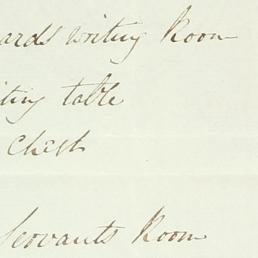 ards writing Room
ting table
Chest
Servants Room